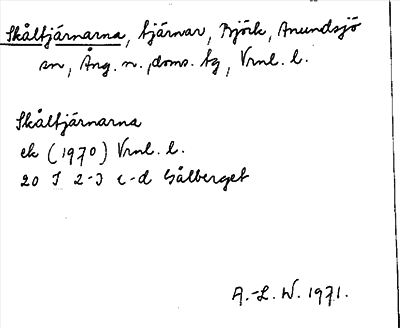 Skåltjärnarna, tjärnar, Björk, Anundsjö
sn, Ång. n. doms. tg, Vrnl. l.
Skåltjärnarna
ek (1970) Vrnl. l.
20 I 2-3 c-d Gålberget
A.-L. W. 1971.